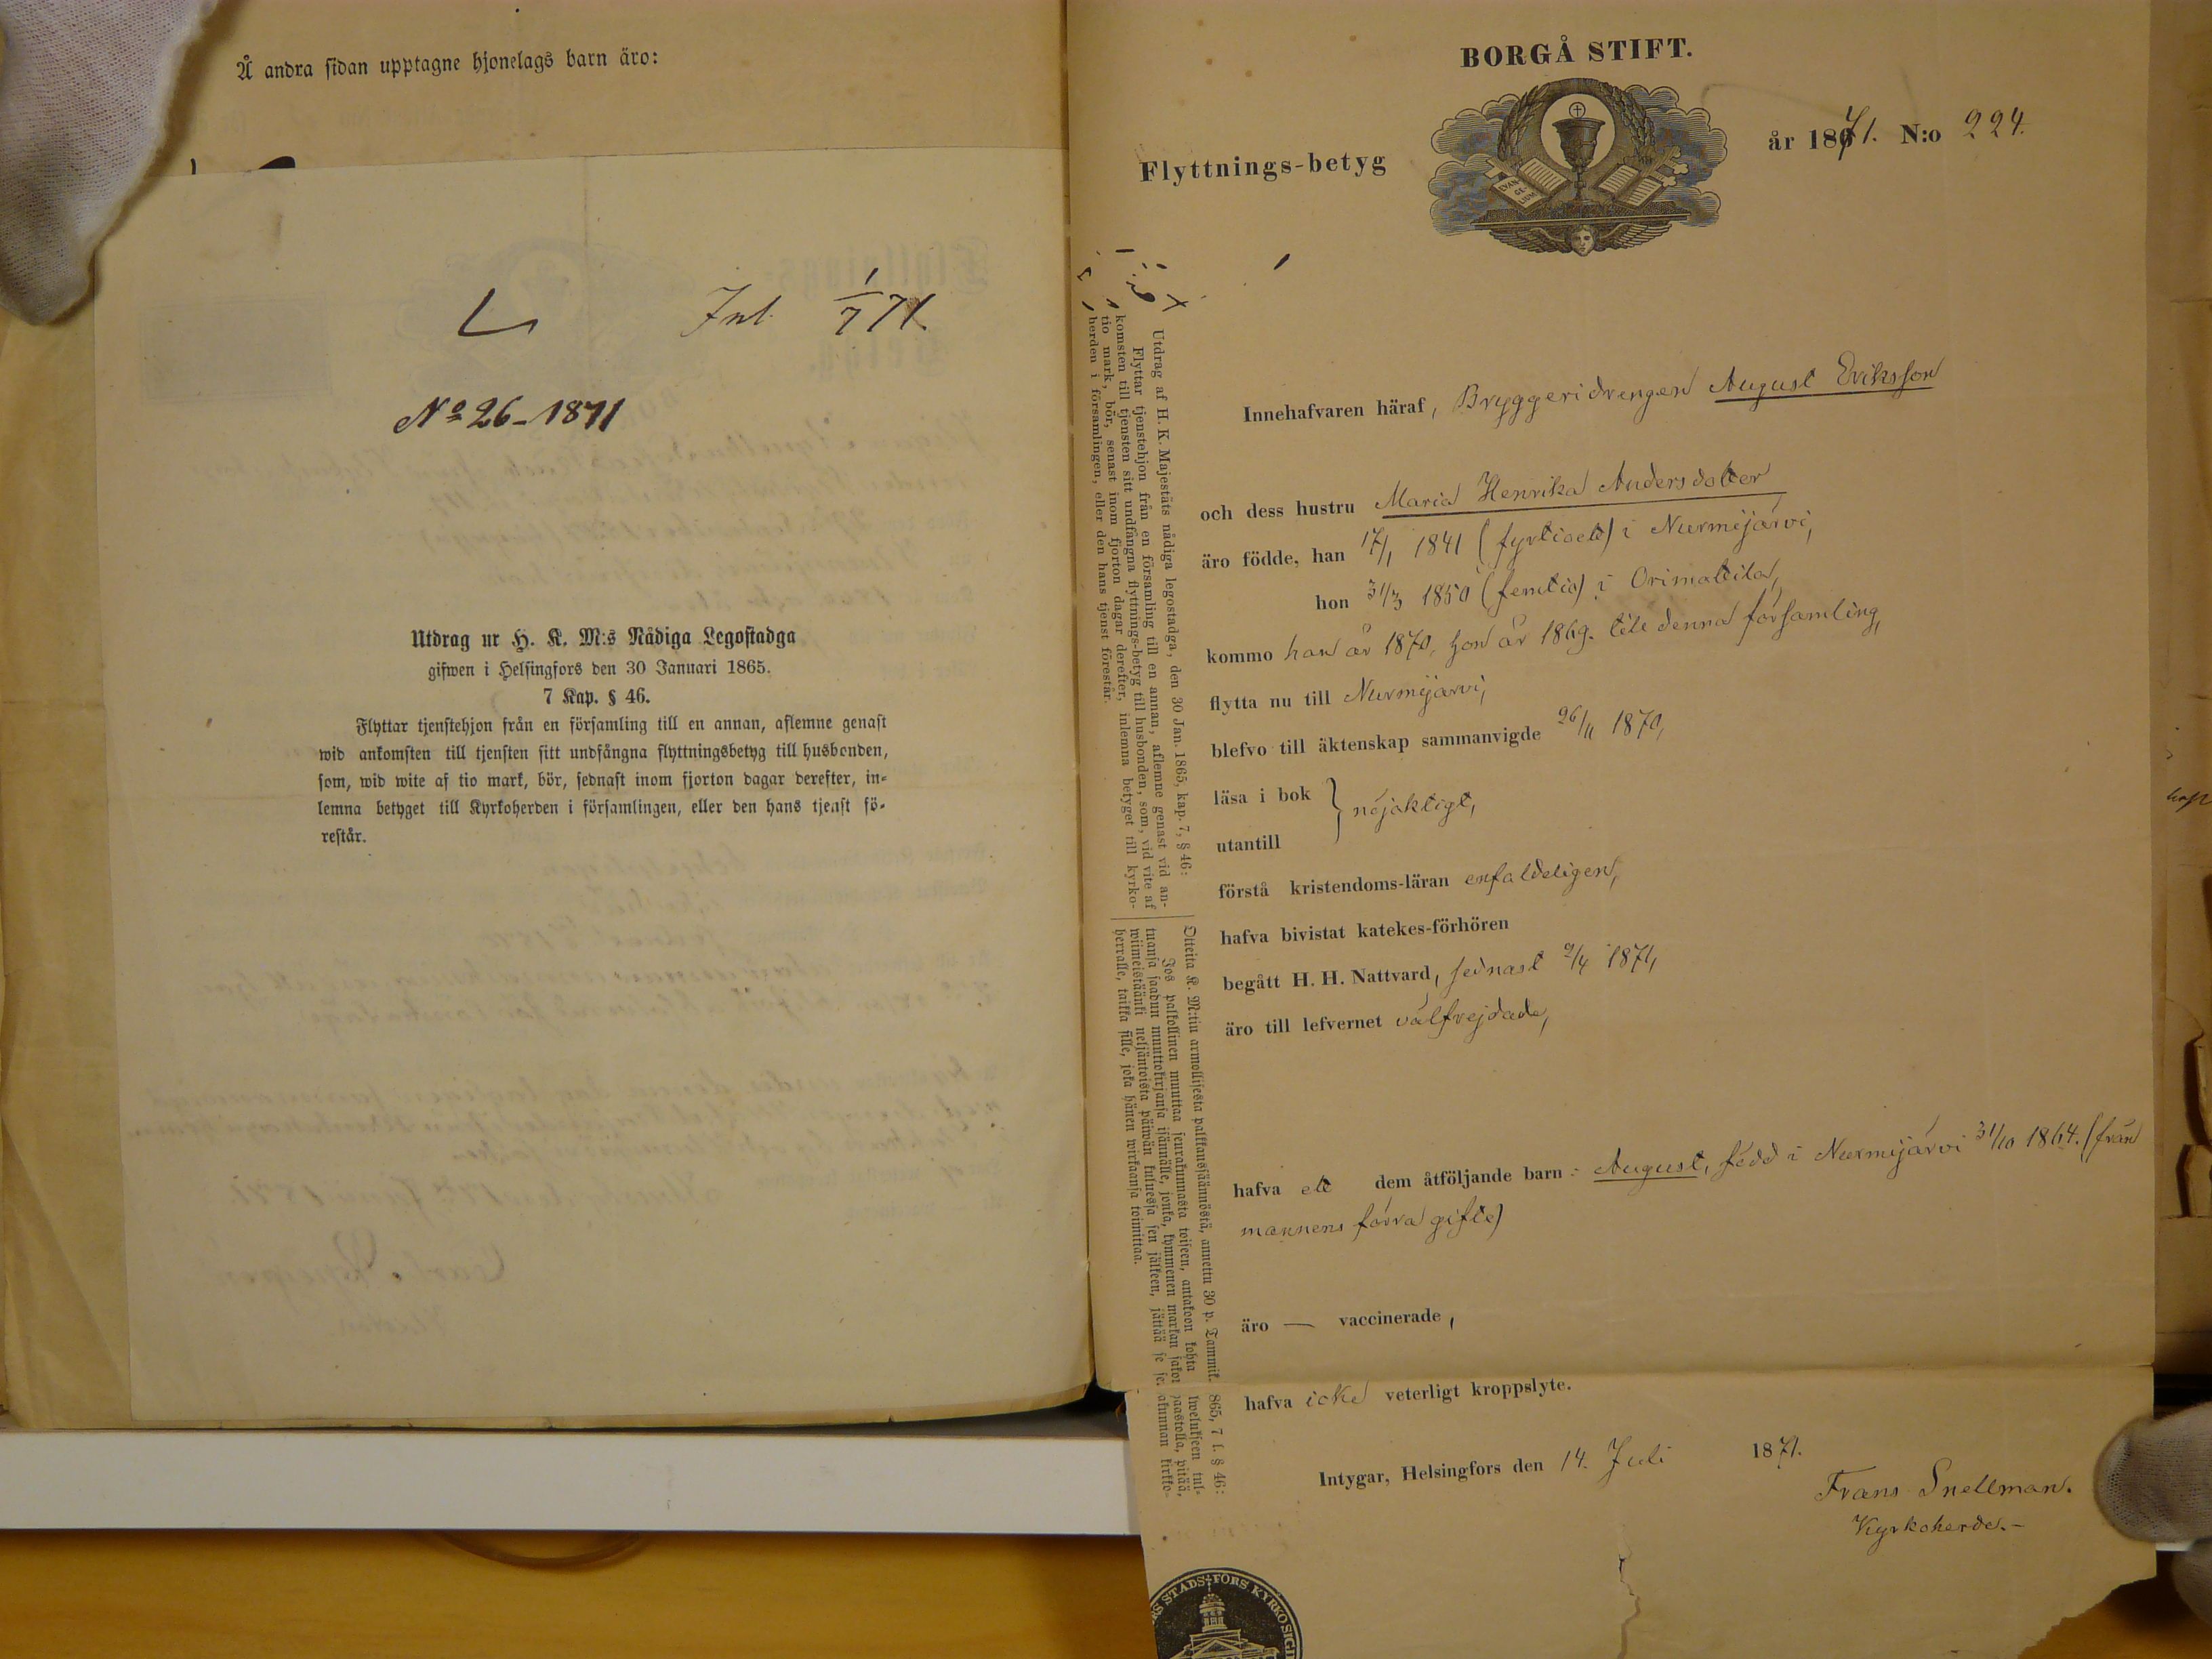 Å andra sidan upptagne hjonelags barn äro:
L Inl. 1/7 71
No 26-1871
Utdrag ur H. K. M:s Nådiga Legostadga
gifwen i Helsingfors den 30 Januari 1865.
7 Kap. § 46.
Flyttar tjenstehjon från en församling till en annan, aflemne genast
wid ankomsten till tjensten sitt undfångna flyttningsbetyg till husbonden,
som, wid wite af tio mark, bör, sednast inom fjorton dagar derefter, in-
lemna betyget till Kyrkoherden i församlingen, eller den hans tjenst fö-
restår.
BORGÅ STIFT.
Flyttnings-betyg
EVAN-
GE-
LIUM
år 1871. N:o 224.
Innehafvaren häraf, Bryggeridrengen August Eriksson
och dess hustru Maria Henrika Andersdotter
äro födde, han 17/1 1841 (fyrtioett) i Nurmijärvi,
hon 31/3 1850 (femtio) i Orimattila,
kommo han år 1870, hon år 1869. till denna församling,
flytta nu till Nurmijärvi,
blefvo till äktenskap sammanvigde 26/11 1870,
läsa i bok
utantill } nöjaktigt,
förstå kristendoms-läran enfaldeligen,
hafva bivistat katekes-förhören
begått H. H. Nattvard, sednast 9/4 1871,
äro till lefvernet välfrejdade,
hafva ett dem åtföljande barn: August, född i Nurmijärvi 31/10 1864. (från
mannens förra gifte)
äro — vaccinerade,
hafva icke veterligt kroppslyte.
Intygar, Helsingfors den 14. Juli 1871.
Frans Snellman.
Kyrkoherde.-
Utdrag af H. K. Majestäts nådiga legostadga, den 30 Jan. 1865, kap. 7, § 46:
Flyttar tjenstehjon från en församling till en annan, aflemne genast vid an-
komsten till tjensten sitt undfångna flyttnings-betyg till husbonden, som, vid vite af
tio mark, bör, senast inom fjorton dagar derefter, inlemna betyget till kyrko-
herden i församlingen, eller den hans tjenst förestår.
Otteita K. M:tin armollisesta palkkaussäännöstä, annettu 30 p. Tammik. 865, 7 l. § 46:
Jos palkollinen muuttaa seurakunnasta toiseen, antakoon kohta lwelukseen tul-
tuansa saadun muuttokirjansa isännälle, jonka, kymmenen markan sakon haastolla, pitää,
wiimeistäänki neljäntoista päiwän kuluessa sen jälkeen, jättää se se akunnan kirkko-
herralle, taikka sille, joka hänen wirkaansa toimittaa.
RS STADS-FÖRS. KYRKOSIGI